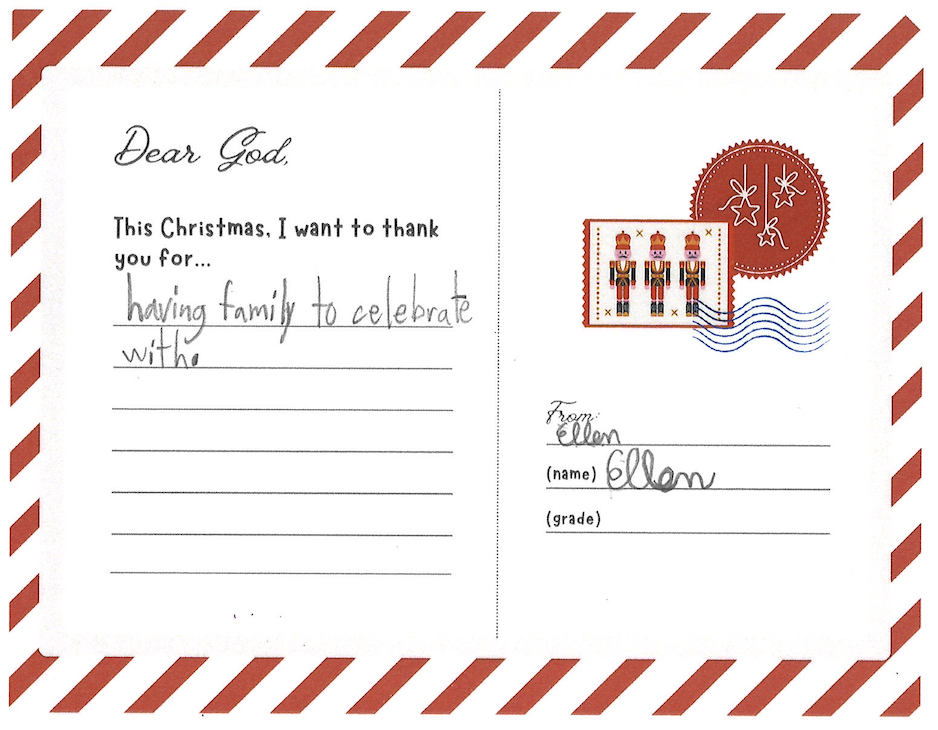 Dear God,
This Christmas, I want to thank
you for...
having family to celebrate
with.
From:
Ellen
(name) Ellen
(grade)